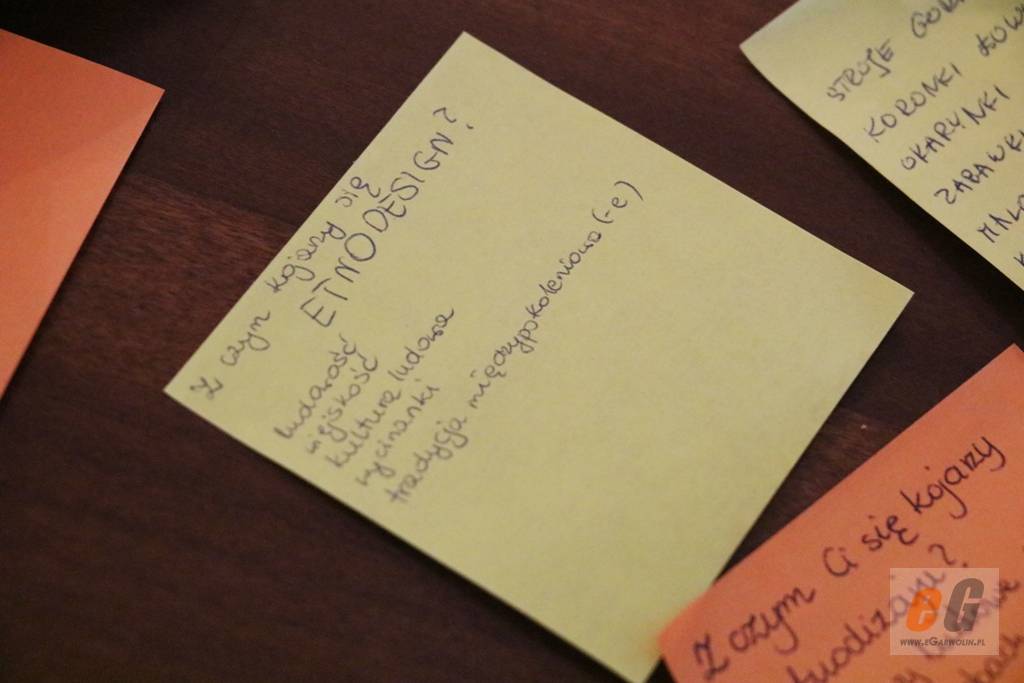 Z czym kojarzy się
ETNODESIGN?
ludowość
wiejskość
kultura ludowa
wycinanki
tradycja międzypokoleniowa (-e)
STROJE
KORONKI
OKARYNKI
ZABAWKI
Z czym Ci się kojarzy
eG
www.eGarwolin.pl